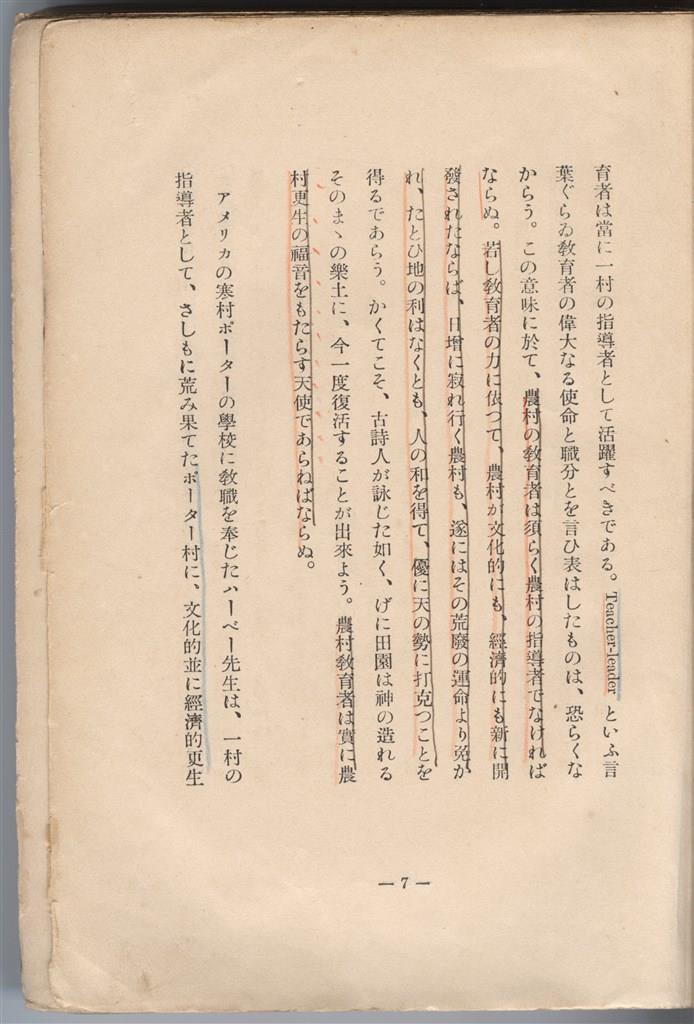 育者は當に一村の指導者として活躍すべきである。Teacher-leader といふ言
葉ぐらゐ敎育者の偉大なる使命と職分とを言ひ表はしたものは、恐らくな
からう。この意味に於て、農村の敎育者は須らく農村の指導者でなければ
ならぬ。若し敎育者の力に依つて、農村が文化的にも、經濟的にも新に開
發されたならば、日增に寂れ行く農村も、遂にはその荒廢の運命より免か
れ、たとひ地の利はなくとも、人の和を得て、優に天の勢に打克つことを
得るであらう。かくてこそ、古詩人が詠じた如く、げに田園は神の造れる
そのまゝの樂土に、今一度復活することが出來よう。農村敎育者は實に農
村更生の福音をもたらす天使であらねばならぬ。
アメリカの寒村ポーターの學校に敎職を奉じたハーベー先生は、一村の
指導者として、さしもに荒み果てたポーター村に、文化的並に經濟的更生
— 7 —